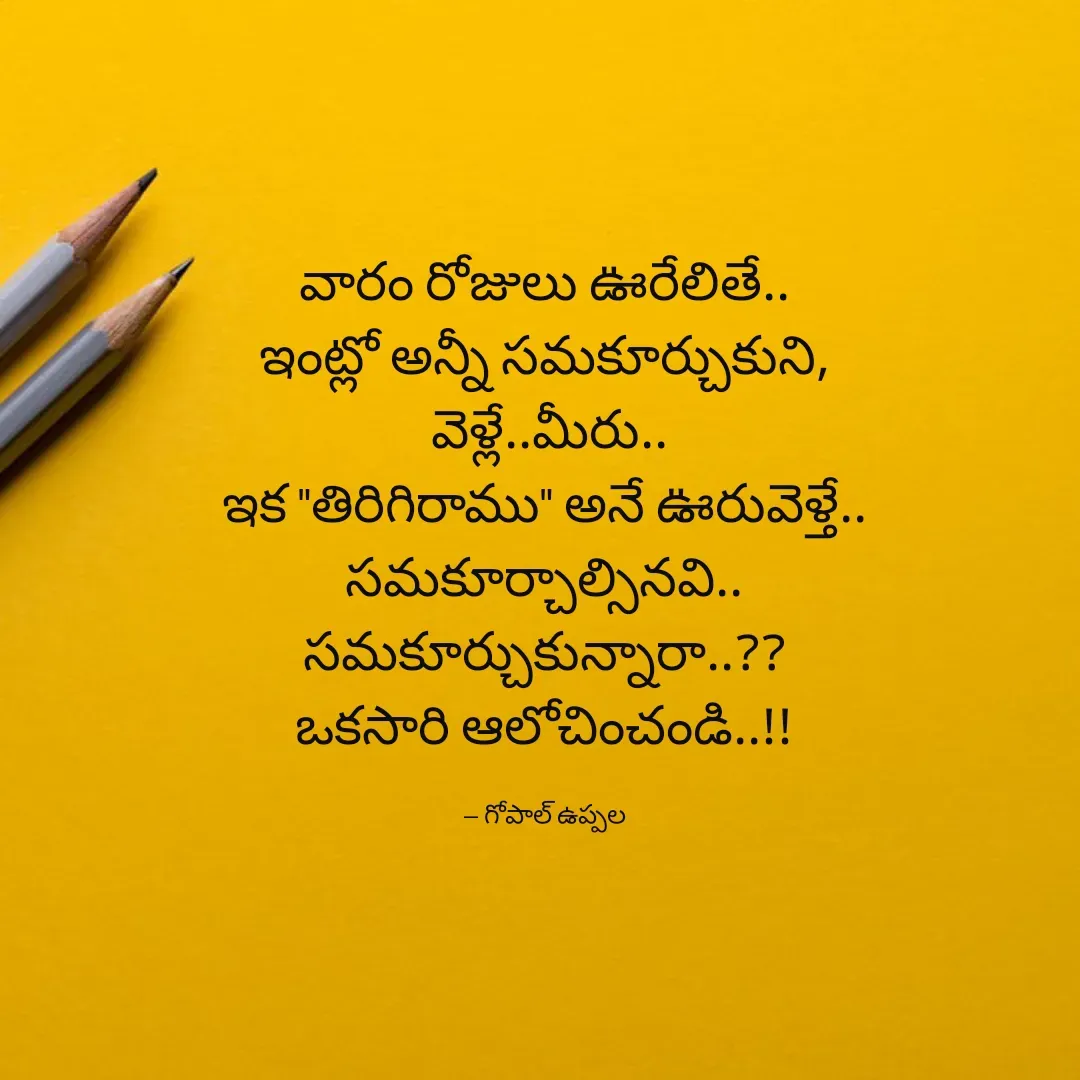 వారం రోజులు ఊరేలితే..
ఇంట్లో అన్నీ సమకూర్చుకుని,
వెళ్లే..మీరు..
ఇక "తిరిగిరాము" అనే ఊరువెళ్తే..
సమకూర్చాల్సినవి..
సమకూర్చుకున్నారా..??
ఒకసారి ఆలోచించండి..!!
– గోపాల్ ఉప్పల